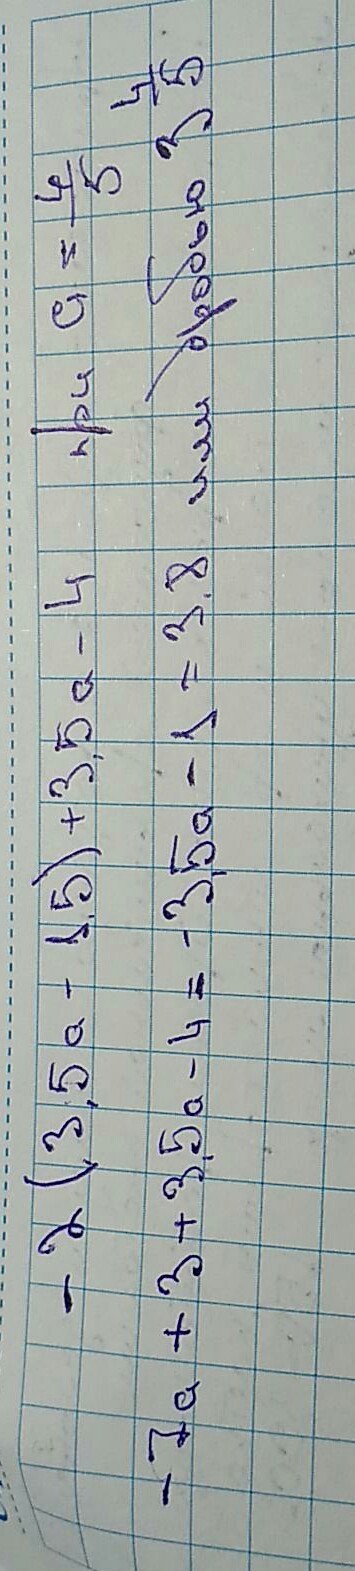 -2(3,5a-1,5)+3,5a-4 при a=4/5
-7a+3+3,5a-4=-3,5a-1=3.8 или дробью 3 4/5